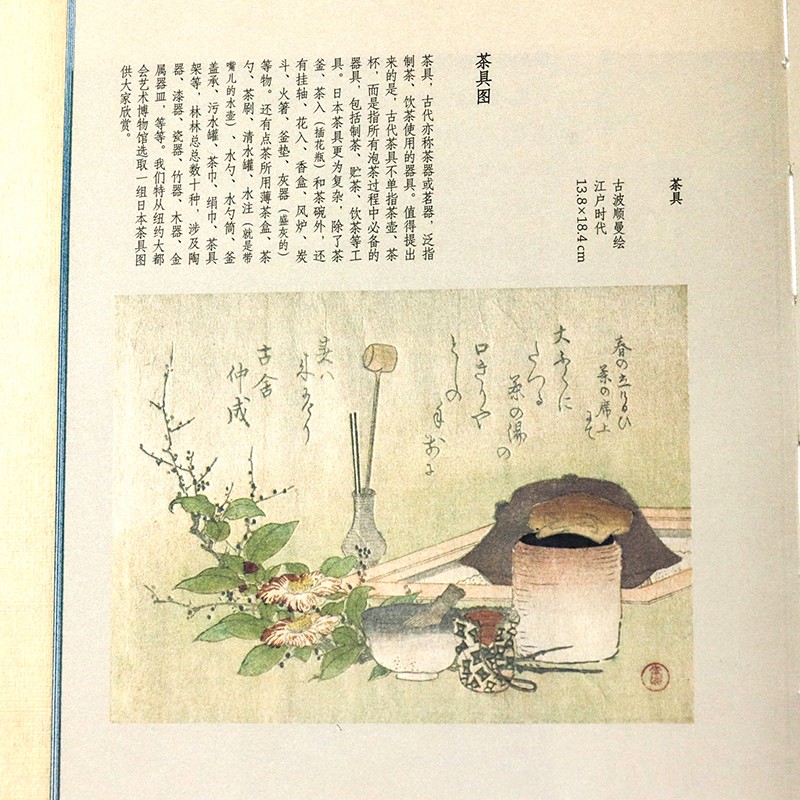 茶具
古波顺曼绘
江户时代
13.8×18.4cm
茶具图
茶具，古代亦称茶器或茗器，泛指
制茶、饮茶使用的器具。值得提出
来的是，古代茶具不单指茶壶、茶
杯，而是指所有泡茶过程中必备的
器具，包括制茶、贮茶、饮茶等工
具。日本茶具更为复杂，除了茶
釜、茶入（插花瓶）和茶碗外，还
有挂轴、花入、香盒、风炉、炭
斗、火箸、釜垫、灰器（盛灰的）
等物。还有点茶所用薄茶盒、茶
勺、茶刷、清水罐、水注（就是带
嘴儿的水壶）、水勺、水勺筒、釜
盖承、污水罐、茶巾、绢巾、茶具
架等，林林总总数十种，涉及陶
器、漆器、瓷器、竹器、木器、金
属器皿，等等。我们特从纽约大都
会艺术博物馆选取一组日本茶具图
供大家欣赏。
春の立けるひ
茶の席上にて
大ふくに
たつる
茶の湯の
口きりや
としの
手前に
来にけり
古舎
仲成